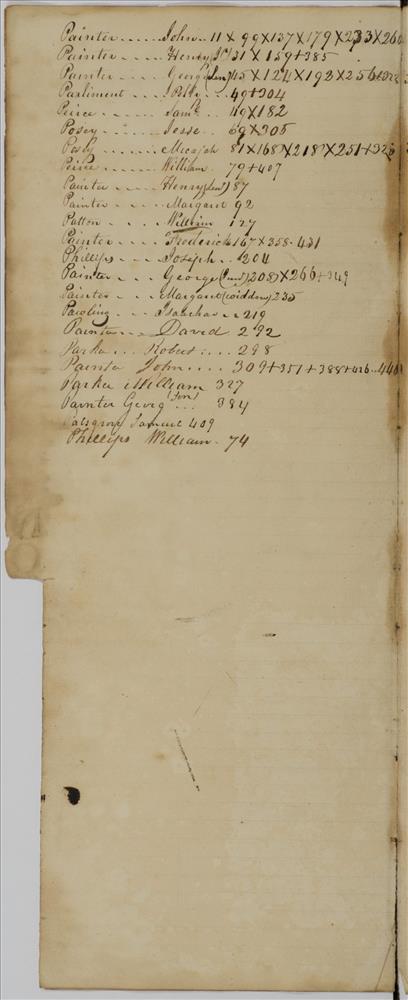 Painter . . . . John . . 11 X 99 X 137 X 179 X 233 X 260
Painter . . . . Henry Jr 31 X 159 + 385
Painter . . . . Georg (Sen) 45 X 124 X 193 X 256 + 328
Parliment . . . 49 + 304
Peirce . . . . Saml 49 X 182
Posey . . . . Jesse . . 69 X 305
Posey . . . . Micajah 81 X 168 X 218 X 251 + 325
Peirce . . . . William . 79 + 407
Painter . . . Henry (Sen) 87
Painter . . . Margaret 92
Patton . . . William 127
Painter . . . Frederick 167 X 258 - 431
Phillips . . . Joseph . . 204
Painter . . . George (Jun) 208 X 266 + 349
Painter . . . Margaret (widdow) 235
Pawling . . . 219
Painter . . . David 292
Parker . . . Robert . . . 298
Painter John . . . . 309 + 351 + 388 + 426 . . 440
Parker William 327
Paynter Georg (Jon) . . . 384
Samuel 409
Phillips William . 74